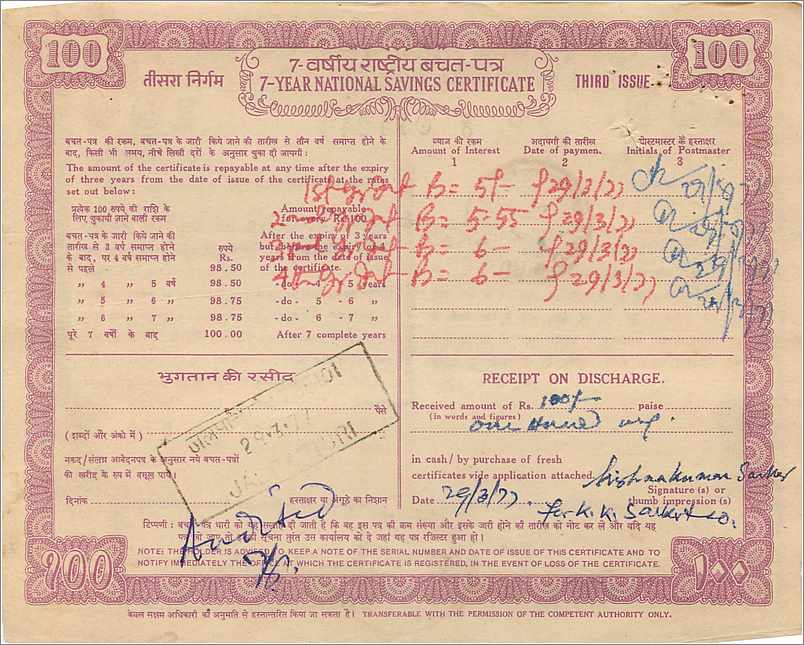 100
7-वर्षीय राष्ट्रीय बचत-पत्र
100
तीसरा निर्गम
7-YEAR NATIONAL SAVINGS CERTIFICATE
THIRD ISSUE
बचत-पत्र की रकम, बचत-पत्र के जारी किये जाने की तारीख से तीन वर्ष समाप्त होने के
बाद, किसी भी समय, नीचे लिखी दरों के अनुसार चुका दी जाएगी:
The amount of the certificate is repayable at any time after the expiry
of three years from the date of issue of the certificate at the rates
set out below:
प्रत्येक 100 रुपये की राशि के
लिए चुकायी जाने वाली रकम
Amount repayable
for every Rs. 100
बचत-पत्र के जारी किये जाने की
तारीख से 3 वर्ष समाप्त होने
के बाद, पर 4 वर्ष समाप्त होने
से पहले
रुपये
Rs.
98.50
After the expiry of 3 years
but before the expiry of 4
years from the date of issue
of the certificate.
" 4 " 5 वर्ष 98.50 -do- 4 - 5 years
" 5 " 6 " 98.75 -do- 5 - 6 "
" 6 " 7 " 98.75 -do- 6 - 7 "
पूरे 7 वर्षों के बाद 100.00 After 7 complete years
ब्याज की रकम
Amount of Interest
1
अदायगी की तारीख
Date of paymen.
2
पोस्टमास्टर के हस्ताक्षर
Initials of Postmaster
3
5/- 29/3/77
5-55 29/3/77
6- 29/3/77
6- 29/3/77
भुगतान की रसीद
पैसे
(शब्दों और अंकों में)
नकद/संलग्न आवेदनपत्र के अनुसार नये बचत-पत्रों
की खरीद के रूप में वसूल पाये।
दिनांक
हस्ताक्षर या अंगूठे का निशान
RECEIPT ON DISCHARGE.
Received amount of Rs. 100/- paise
(In words and figures)
one
in cash/by purchase of fresh
certificates vide application attached.
Krishnakumar Sarker
Signature (s) or
Date 29/3/77
thumb impression (s)
For K. K. Sarker & Co.
टिप्पणी: बचत-पत्र धारी को यह सलाह दी जाती है कि वह इस पत्र की क्रम संख्या और इसके जारी होने की तारीख को नोट कर ले और यदि यह
NOTE: THE HOLDER IS ADVISED TO KEEP A NOTE OF THE SERIAL NUMBER AND DATE OF ISSUE OF THIS CERTIFICATE AND TO
NOTIFY IMMEDIATELY THE OFFICE AT WHICH THE CERTIFICATE IS REGISTERED, IN THE EVENT OF LOSS OF THE CERTIFICATE.
१००
१००
केवल सक्षम अधिकारी की अनुमति से हस्तान्तरित किया जा सकता है। TRANSFERABLE WITH THE PERMISSION OF THE COMPETENT AUTHORITY ONLY.